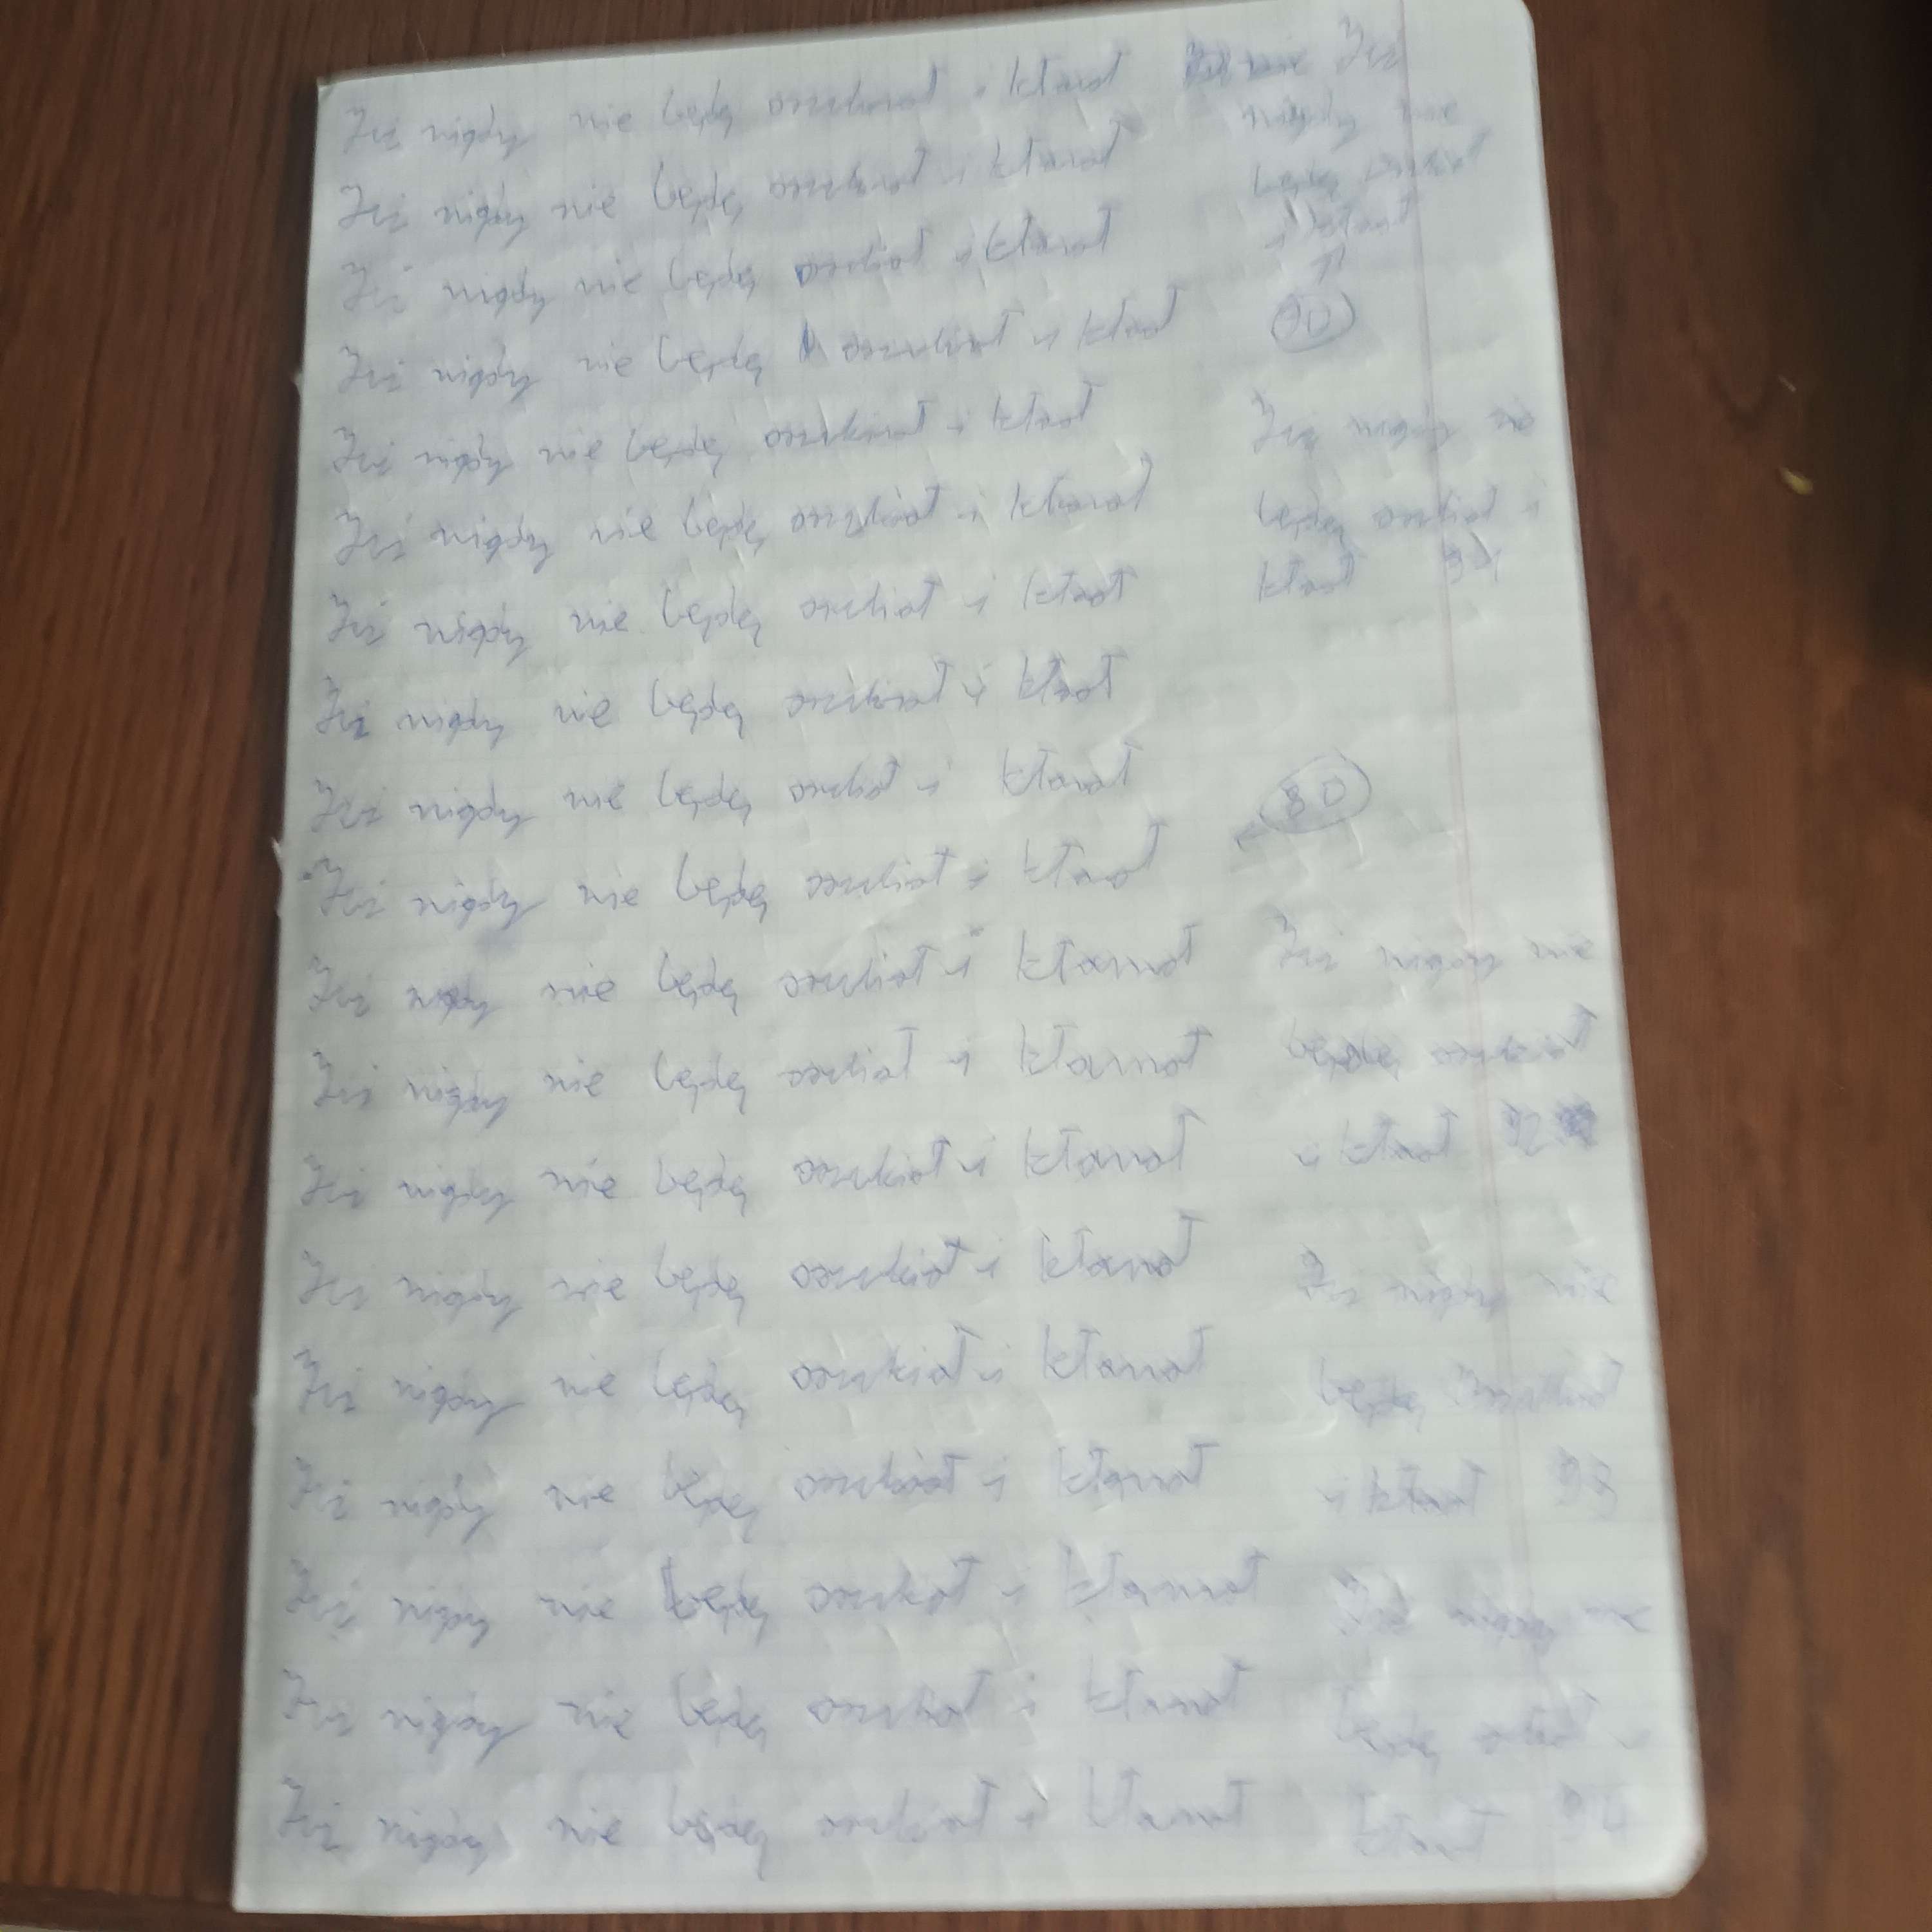 Już nigdy nie będę oszukiwał i kłamał
Już nigdy nie będę oszukiwał i kłamał
Już nigdy nie będę oszukiwał i kłamał
Już nigdy nie będę oszukiwał i kłamał
Już nigdy nie będę oszukiwał i kłamał
Już nigdy nie będę oszukiwał i kłamał
Już nigdy nie będę oszukiwał i kłamał
Już nigdy nie będę oszukiwał i kłamał
Już nigdy nie będę oszukiwał i kłamał
Już nigdy nie będę oszukiwał i kłamał
Już nigdy nie będę oszukiwał i kłamał
Już nigdy nie będę oszukiwał i kłamał
Już nigdy nie będę oszukiwał i kłamał
Już nigdy nie będę oszukiwał i kłamał
Już nigdy nie będę oszukiwał i kłamał
Już nigdy nie będę oszukiwał i kłamał
Już nigdy nie będę oszukiwał i kłamał
Już nigdy nie będę oszukiwał i kłamał
Już nigdy nie będę oszukiwał i kłamał
Już
nigdy nie
będę oszukiwał
i kłamał
90
Już nigdy nie
będę oszukiwał i
kłamał 91
80
Już nigdy nie
będę oszukiwał
i kłamał 92
Już nigdy nie
będę oszukiwał
i kłamał 93
Już nigdy nie
będę oszukiwał i
kłamał 94